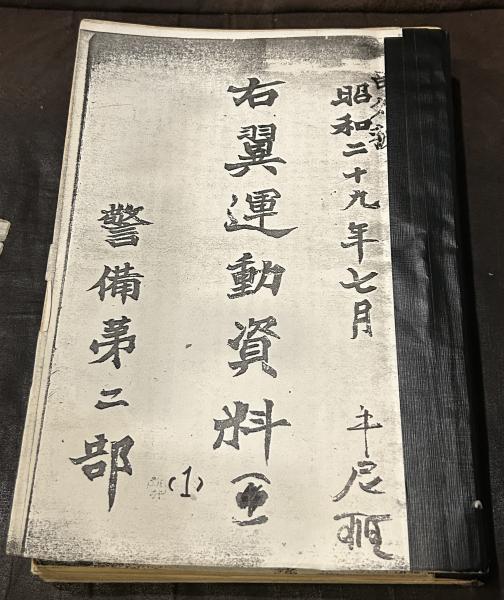 昭和二十九年七月
右翼運動資料
警備第二部
(1)